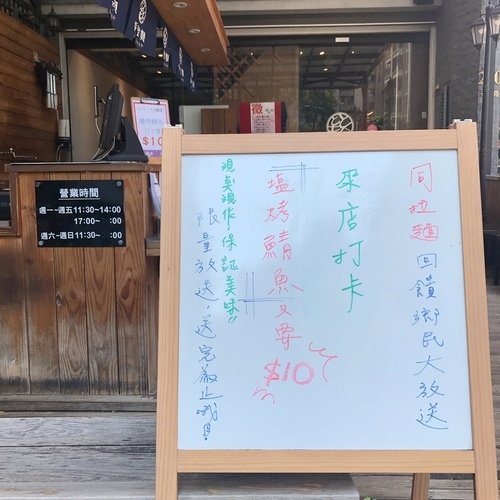 同拉麵回饋鄉民大放送
來店打卡
塩烤鯖魚只要
$10
現點現作!保証美味!!
限量放送,送完為止哦!
營業時間
週一~週五11:30~14:00
17:00~ :00
週六~週日11:30~ :00
徵
$10